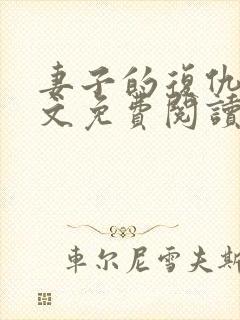 妻子的復仇
文免費閱讀
車尔尼雪夫斯